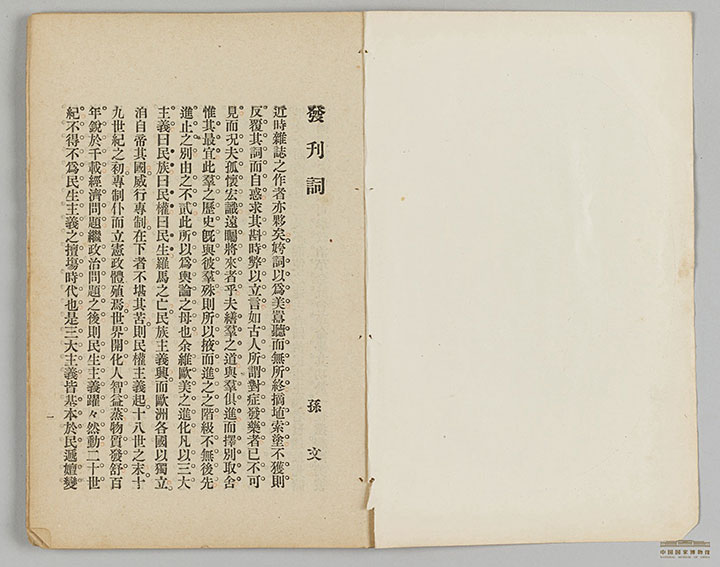 發刊詞
孫文
近時雜誌之作者亦夥矣姱詞以爲美囂聽而無所終摘埴索塗不獲則
反覆其詞而自惑求其斟時弊以立言如古人所謂對症發藥者已不可
見而况夫孤懷宏識遠矚將來者乎夫繕羣之道與羣俱進而擇別取舍
惟其最宜此羣之歷史旣與彼羣殊則所以掖而進之之階級不無後先
進止之別由之不貳此所以爲輿論之母也余維歐美之進化凡以三大
主義曰民族曰民權曰民生羅馬之亡民族主義興而歐洲各國以獨立
洎自帝其國威行專制在下者不堪其苦則民權主義起十八世之末十
九世紀之初專制仆而立憲政體殖焉世界開化人智益蒸物質發舒百
年銳於千載經濟問題繼政治問題之後則民生主義躍々然動二十世
紀不得不爲民生主義之擅塲時代也是三大主義皆基本於民遞嬗變
一
中国国家博物馆
NATIONAL MUSEUM OF CHINA